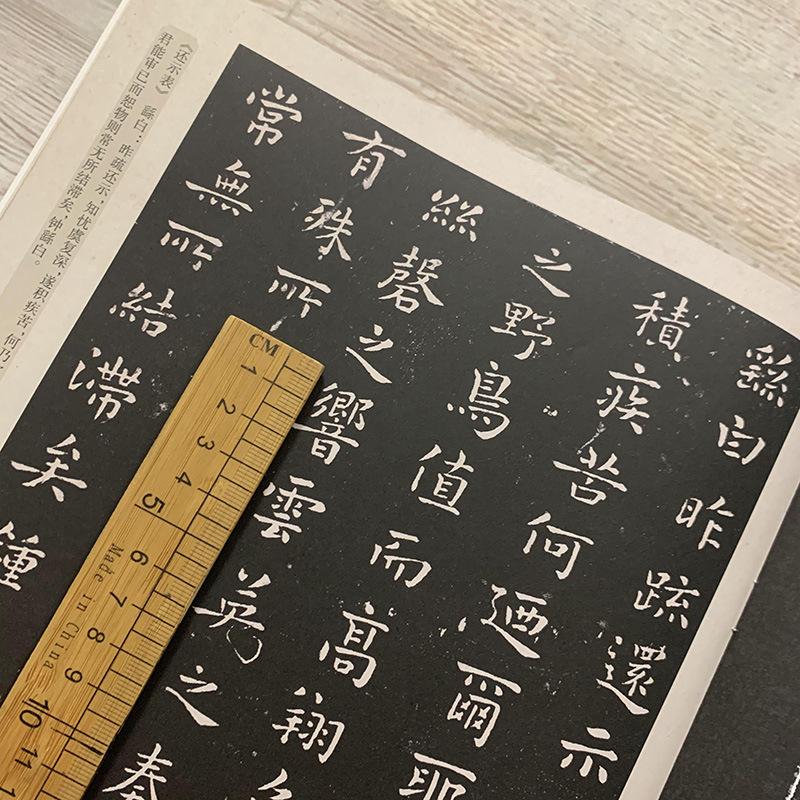 繇白昨疏還示
積疾苦何迺爾耶
之野鳥值而高翔
絲磬之響雲英之奏
有殊所
常無所結滯矣鍾
《还示表》 繇白：昨疏还示，知忧虞复深，遂积疾苦，何乃
君能审已而恕物则常无所结滞矣，钟繇白。
CM
1 2 3 4 5 6 7 8 9 10 11
Made in China